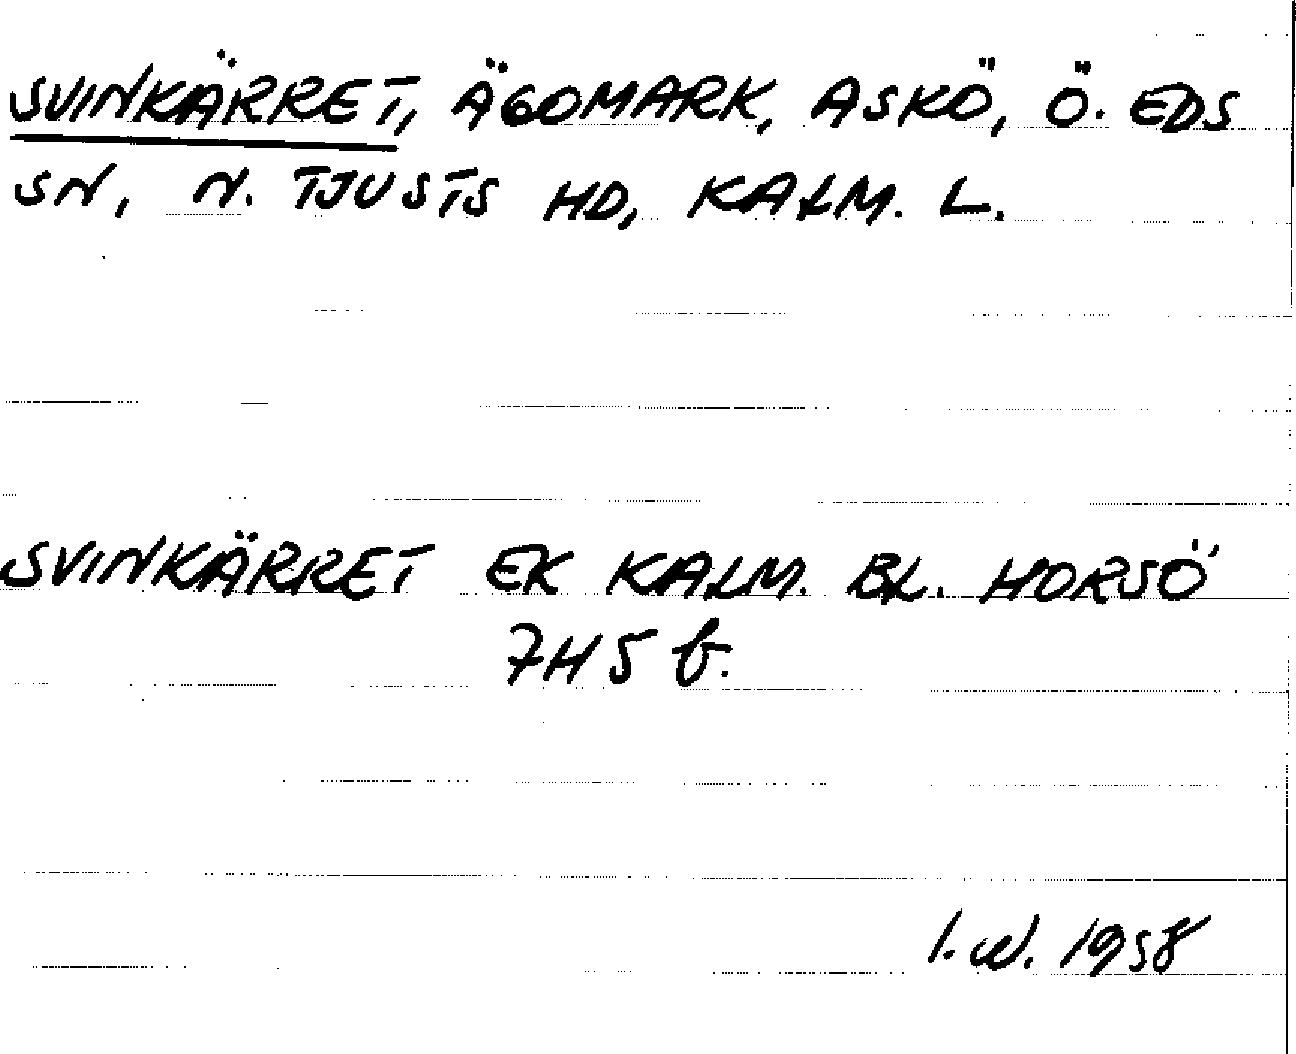 SVINKÄRRET, ÄGOMARK, ASKÖ, Ö. EDS
SN, N. TJUSTS HD, KALM. L.
SVINKÄRRET EK KALM. BL. HORSÖ
7H 5 b.
I.W. 1958